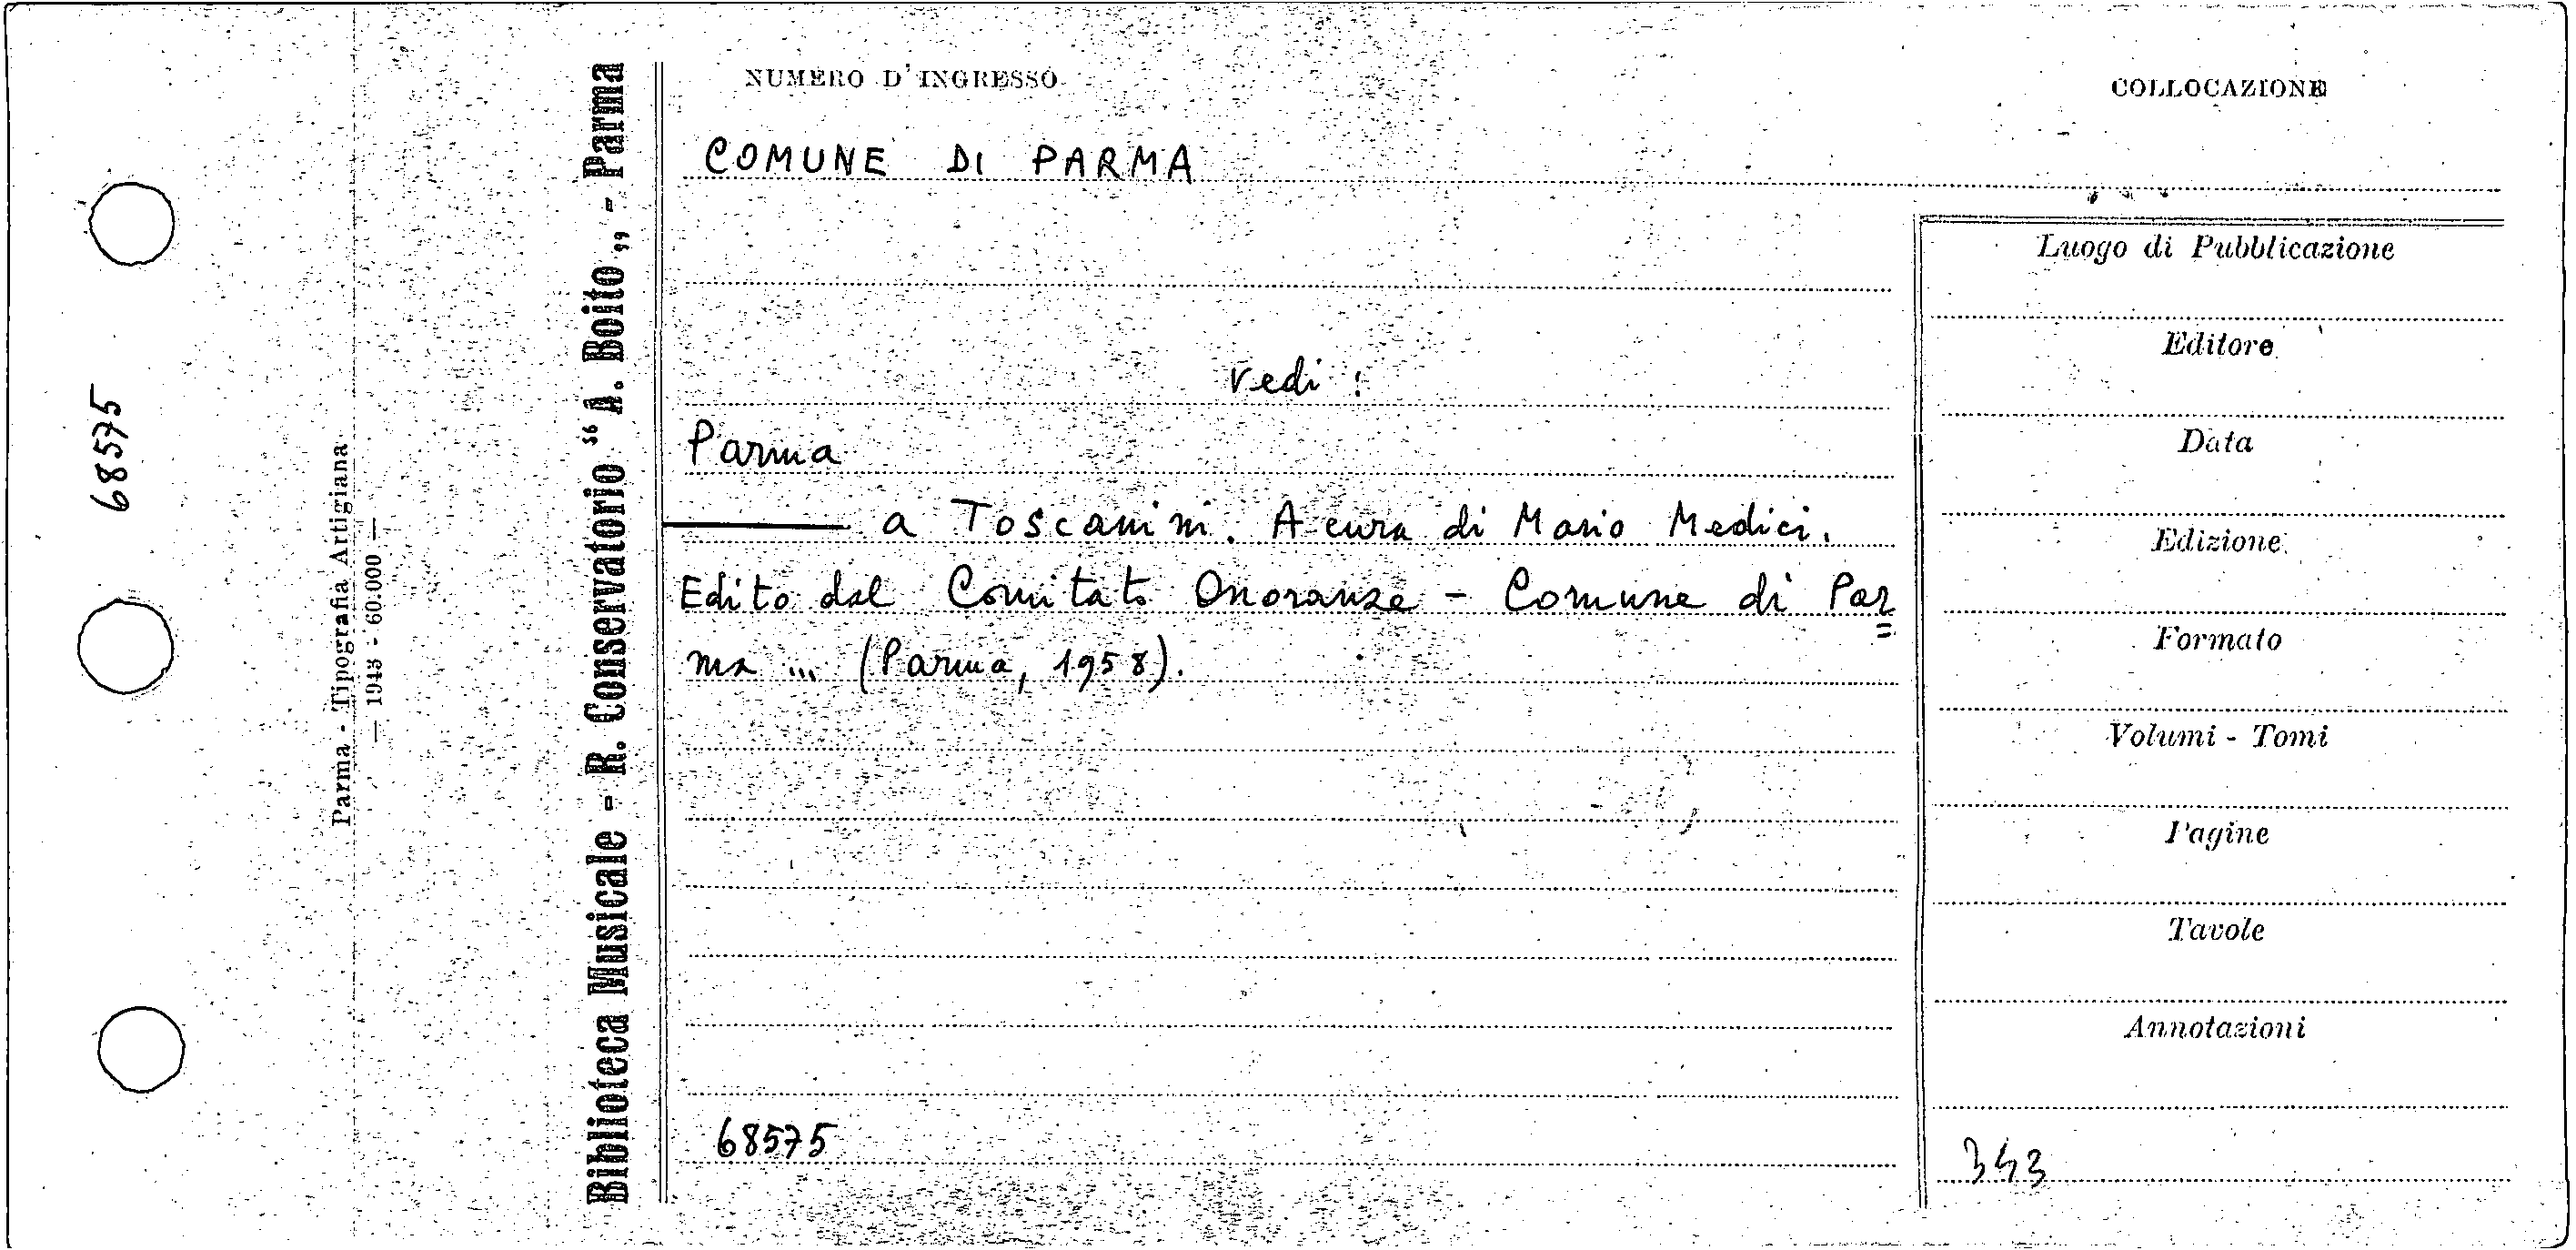 NUMERO D'INGRESSO
COLLOCAZIONE
COMUNE DI PARMA
vedi :
Parma
——— a Toscanini. A cura di Mario Medici.
Edito dal Comitato Onoranze - Comune di Par=
ma ... (Parma, 1958).
68575
Luogo di Pubblicazione
Editore
Data
Edizione
Formato
Volumi - Tomi
Pagine
Tavole
Annotazioni
343
Biblioteca Musicale - R. Conservatorio “A. Boito„ - Parma
Parma - Tipografia Artigiana
— 1943 - 60.000 —
68575